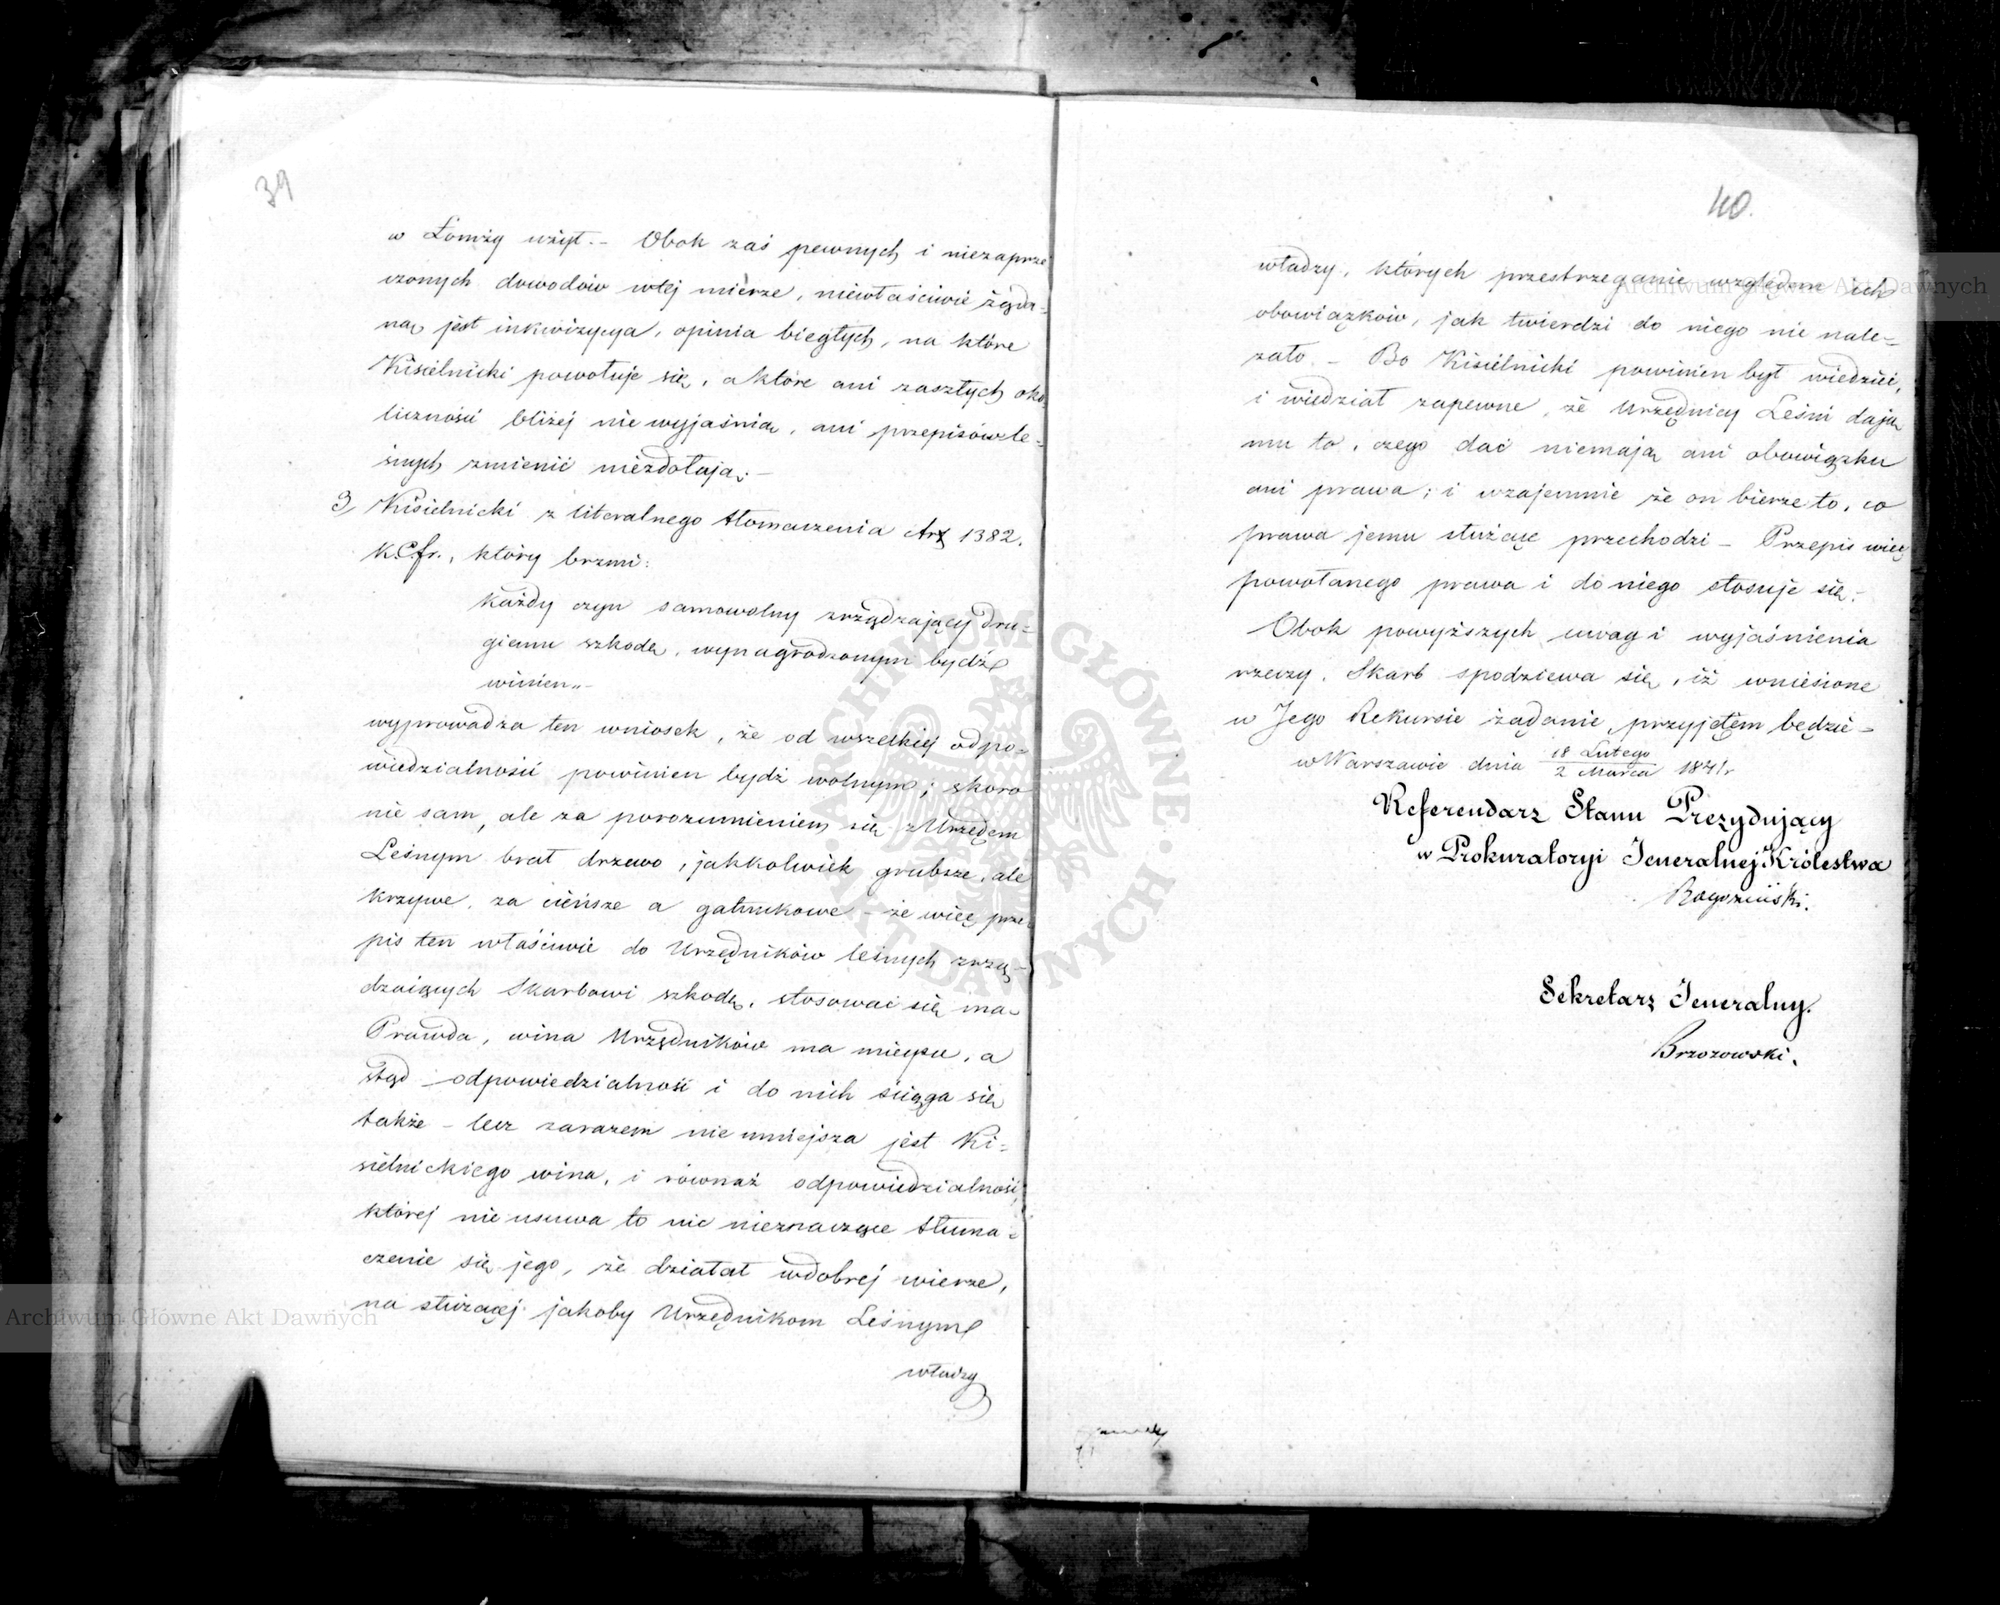 39
w Łomży użyt. - Obok zaś pewnych i niezaprze
czonych dowodów wtej mierze, niewłaściwie żąda-
ną jest inkwizycya, opinia biegłych, na które
Kisielnicki powołuje się, a które ani zaszłych oko-
liczności bliżej nie wyjaśnią, ani przepisów le-
śnych zmienić niezdołają; -
3, Kisielnicki z literalnego tłomaczenia Art 1382.
K.C.fr., który brzmi:
każdy czyn samowolny zrządzający dru-
giemu szkodę, wynagrodzonym bydź
winien„ -
wyprowadza ten wniosek, że od wszelkiej odpo-
wiedzialności powinien bydź wolnym; skoro
nie sam, ale za porozumieniem się z Urzędem
Leśnym brał drzewo, jakkolwiek grubsze, ale
krzywe, za cieńsze a gatunkowe - że więc prze-
pis ten właściwie do Urzędników leśnych zrzą-
dzaiących Skarbowi szkodę, stosować się ma -
Prawda, wina Urzędników ma mieysce, a
stąd odpowiedzialność i do nich ściąga się
także - lecz zarazem nie mniejsza jest Ki-
sielnickiego wina, i równaż odpowiedzialność,
której nie usuwa to nic nieznaczące tłuma-
czenie się jego, że działał wdobrej wierze,
na służącej jakoby Urzędnikom Leśnym
władzy
40.
władzy, których przestrzeganie względem ich
obowiązków, jak twierdzi do niego nie nale-
żało. - Bo Kisielnicki powinien był wiedzieć,
i wiedział zapewne, że Urzędnicy Leśni dają
mu to, czego dać niemają ani obowiązku
ani prawa; i wzajemnie że on bierze to, co
prawa jemu służące przechodzi - Przepis więc
powołanego prawa i do niego stosuje się. -
Obok powyższych uwag i wyjaśnienia
rzeczy, Skarb spodziewa się, iż wniesione
w Jego Rekursie żądanie, przyjętem będzie -
w Warszawie dnia 18 Lutego / 2 Marca 1841 r
Referendarz Stanu Prezydujący
w Prokuratoryi Jeneralnej Królestwa
Rogoziński.
Sekretarz Jeneralny.
Brzozowski.
Archiwum Główne Akt Dawnych
Archiwum Główne Akt Dawnych
ARCHIWUM GŁÓWNE · AKT DAWNYCH ·